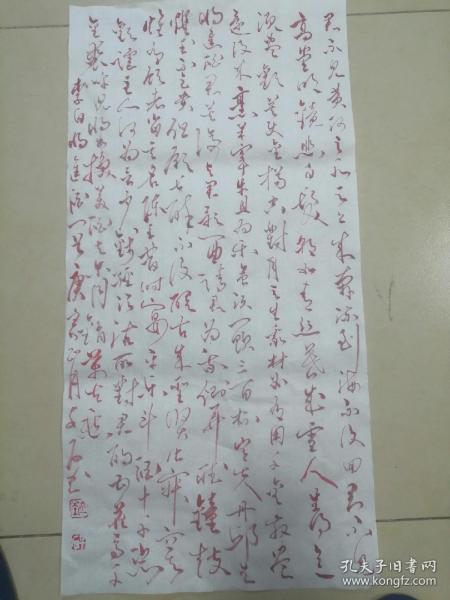 君不见黄河之水天上来奔流到海不复回君不见
高堂明镜悲白发朝如青丝暮成雪人生得意
须尽欢莫使金樽空对月天生我材必有用千金散尽
还复来烹羊宰牛且为乐会须一饮三百杯岑夫子丹丘生
将进酒君莫停与君歌一曲请君为我倾耳听钟鼓
馔玉不足贵但愿长醉不复醒古来圣贤皆寂寞
惟有饮者留其名陈王昔时宴平乐斗酒十千恣
欢谑主人何为言少钱径须沽取对君酌五花马千
金裘呼儿将出换美酒与尔同销万古愁
李白将进酒一首庚寅
孔夫子旧书网